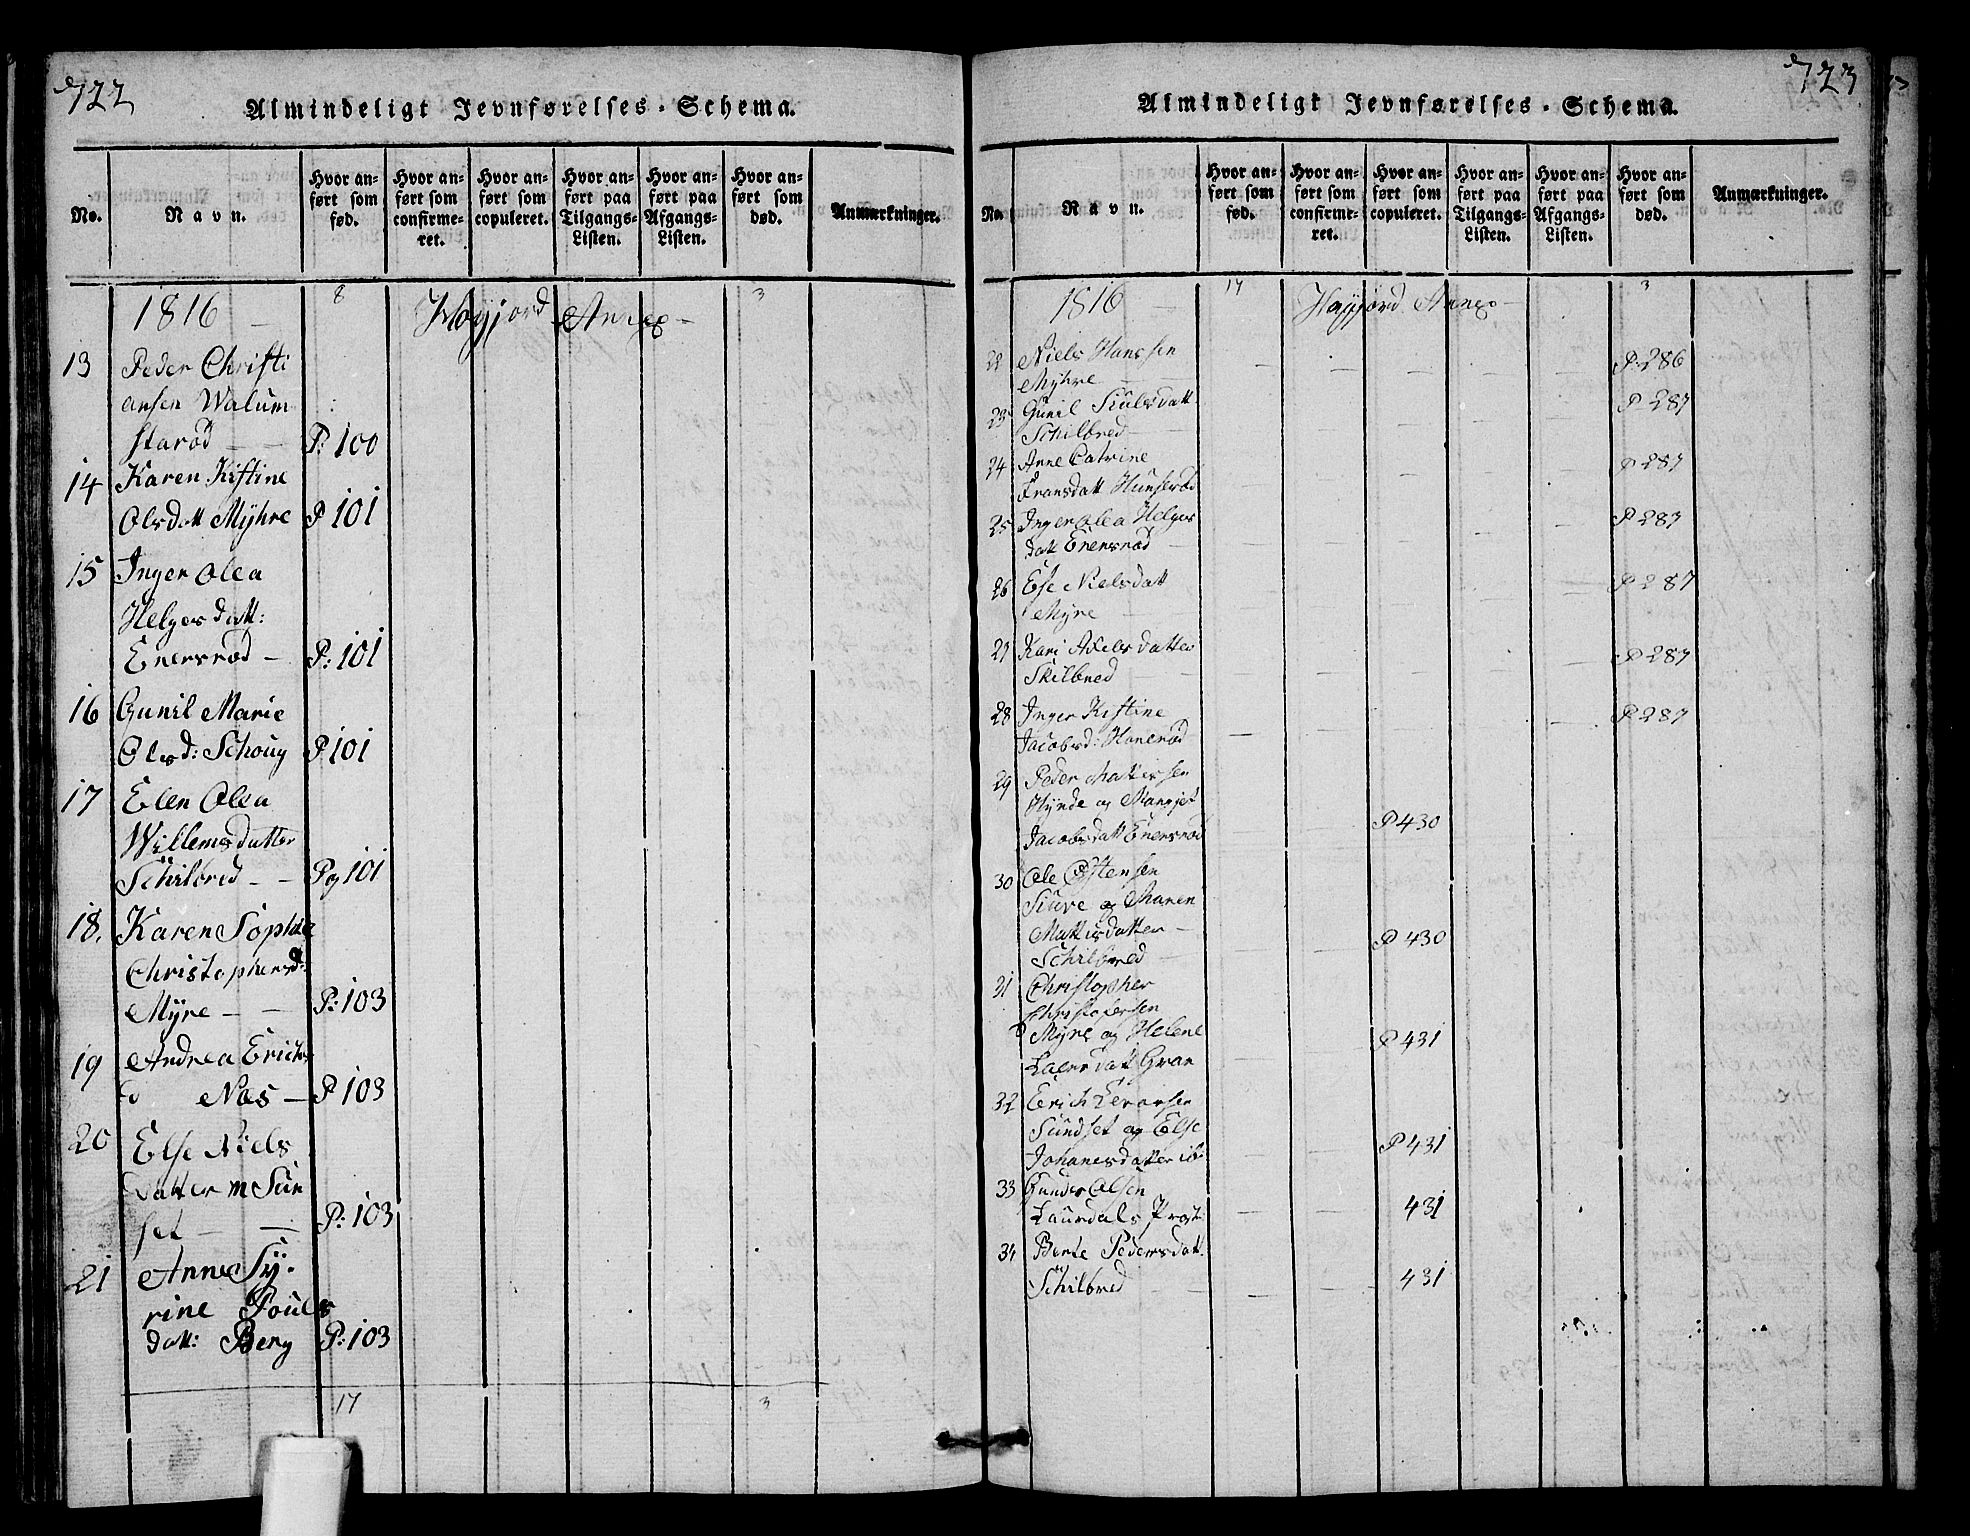 722
Almindeligt Jevnførelses-Schema.
No.
Navn.
Hvor anført som født.
Hvor anført som confirmeret.
Hvor anført som copuleret.
Hvor anført paa Tilgangs-Listen.
Hvor anført paa Afgangs-Listen.
Hvor anført som død.
Anmærkninger.
1816 8 Høyjord Annex 3
13 Peder Christi
ansen Walum
starød P: 100
14 Karen Kistine
Olsdatt Myhre P 101
15 Inger Olea
Helgesdatt:
Enersrød P: 101
16 Gunil Marie
Olsd: Schoug P 101
17 Elen Olea
Willemsdatter
Schilbred Pg 101
18. Karen Sophie
Christophersd:
Myre P: 103
19 Andrea Erichs
d Næs P 103
20 Else Niels
datter m Sun
set P: 103
21 Anne Sy-
rine Pouls
datt: Berg P: 103
17 3
723
Almindeligt Jevnførelses-Schema.
No.
Navn.
Hvor anført som fød.
Hvor anført som confirmeret.
Hvor anført som copuleret.
Hvor anført paa Tilgangs-Listen.
Hvor anført paa Afgangs-Listen.
Hvor anført som død.
Anmærkninger.
1816 17 Høyjord Annex 3
22 Niels Hanssen
Myhre P: 286
23 Gunil Siulsdatt
Schilbred P 287
24 Anne Catrine
Fransdatt Hunserød P 287
25 Inger Olea Helges
datt Enersrød P 287
26 Else Nielsdatt
Myre P 287
27 Kari Axelsdatter
Skilbred P 287
28 Inger Kistine
Jacobsd: Hanerød P 287
29 Peder Mathissen
Hynde og Margjet
Jacobsdatt Enersrød P 430
30 Ole Ostensen
Siuve og Maren
Mattisdatter
Schilbred P 430
31 Christopher
Christofersen
Myre og Helene
Laersdatt Gran P 431
32 Erich Iversen
Sundset og Else
Johanesdatter ib: P 431
33 Gunder Olsen
Laurdals Prgt: 431
34 Berte Pedersdatt.
Schilbred 431